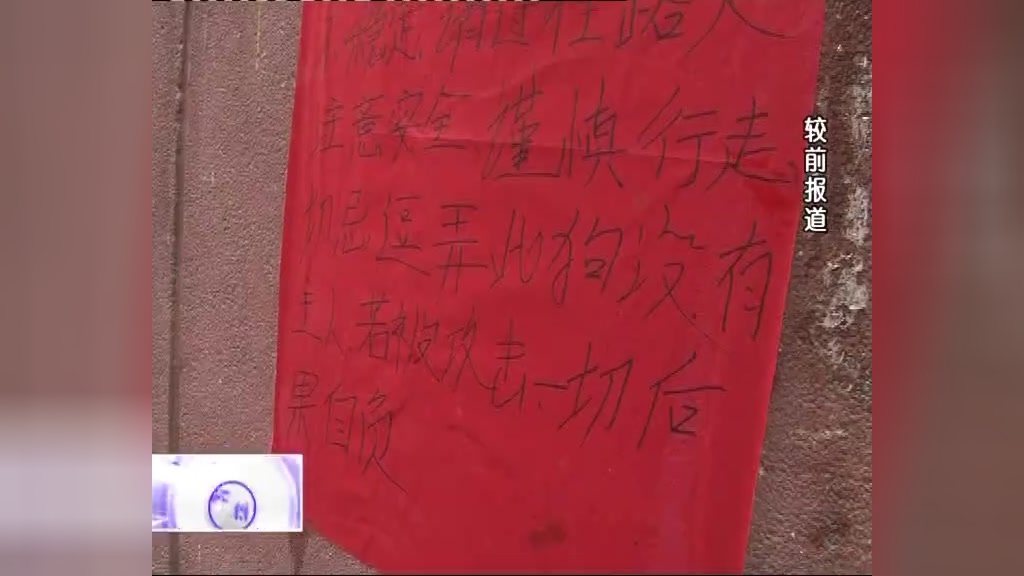 请过往路人
主意安全 谨慎行走
切忌逗弄此狗没有
主人若被攻击、一切后
果自负
较前报道